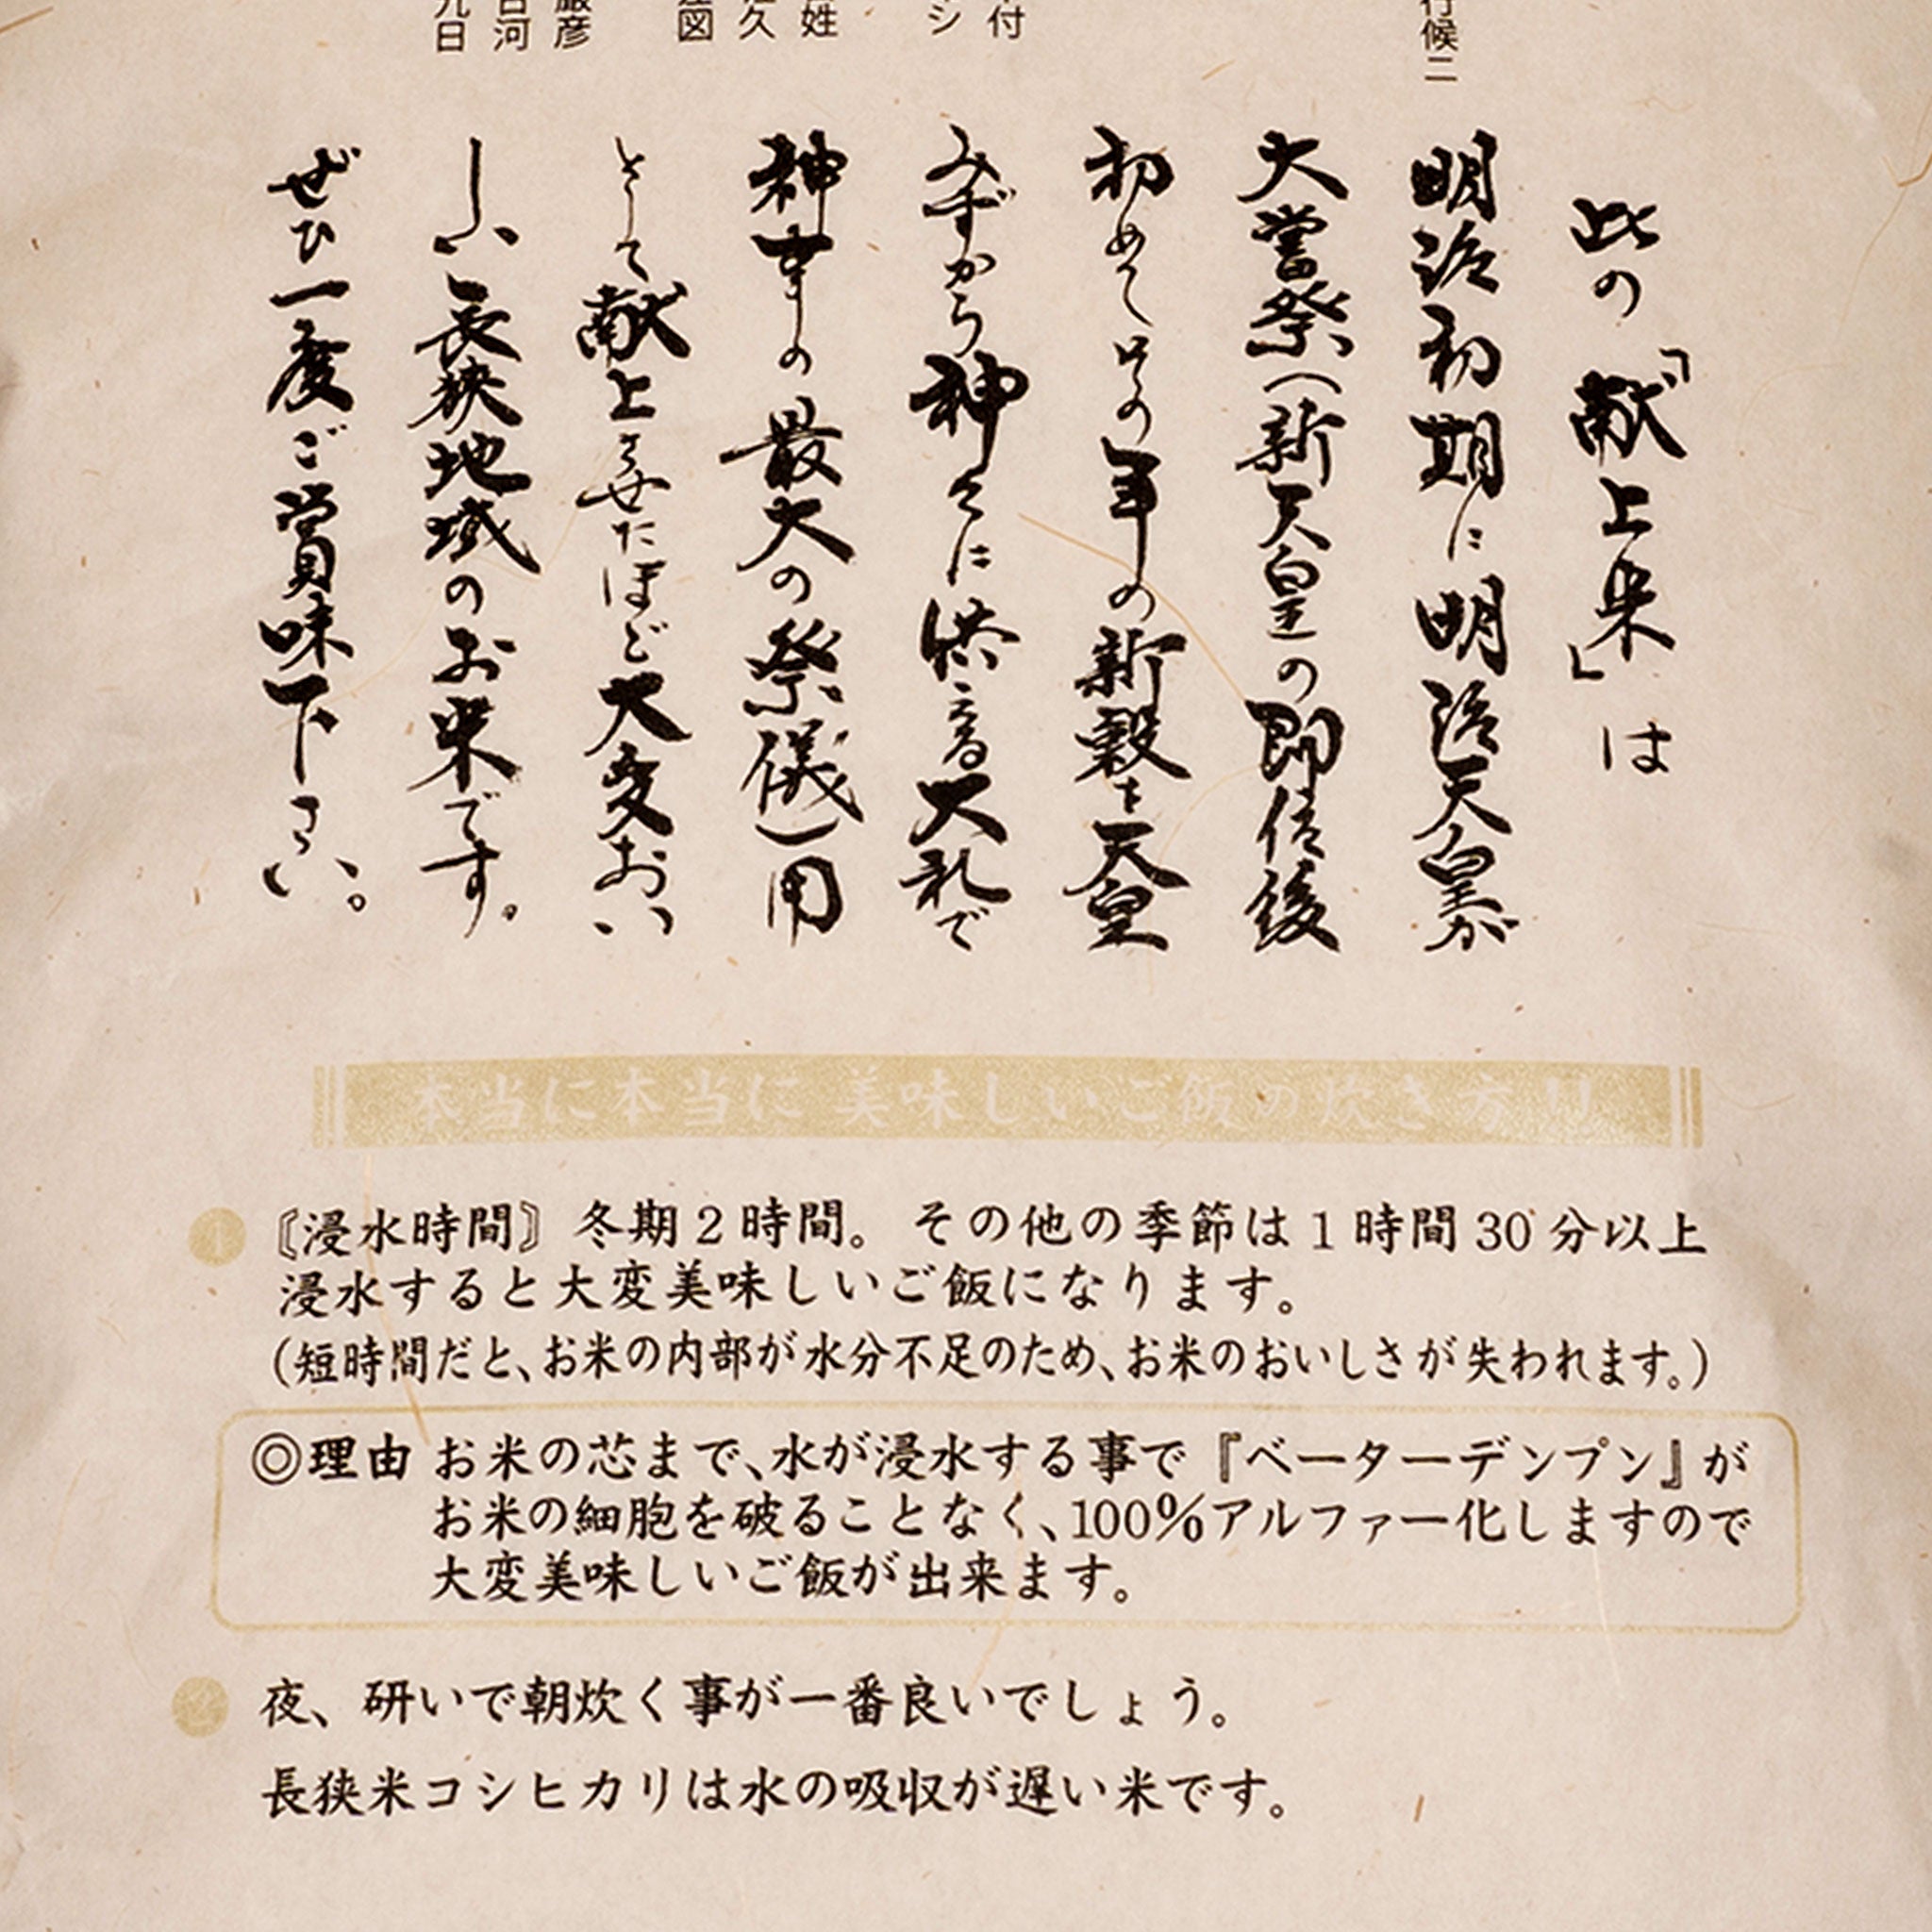 行候ニ
付
シ
姓
久
図
巌彦
古河
九日
此の「献上米」は
明治初期に明治天皇が
大嘗祭(新天皇の即位後
初めてその年の新穀を天皇
みずから神々に供える大礼で
神事の最大の祭儀)用
として献上させたほど大変おい
しい長狭地域のお米です。
ぜひ一度ご賞味下さい。
本当に本当に 美味しいご飯の炊き方!!
1 〘浸水時間〙 冬期2時間。 その他の季節は1時間30分以上
浸水すると大変美味しいご飯になります。
(短時間だと、お米の内部が水分不足のため、お米のおいしさが失われます。)
◎理由 お米の芯まで、水が浸水する事で『ベーターデンプン』が
お米の細胞を破ることなく、100%アルファー化しますので
大変美味しいご飯が出来ます。
2 夜、研いで朝炊く事が一番良いでしょう。
長狭米コシヒカリは水の吸収が遅い米です。